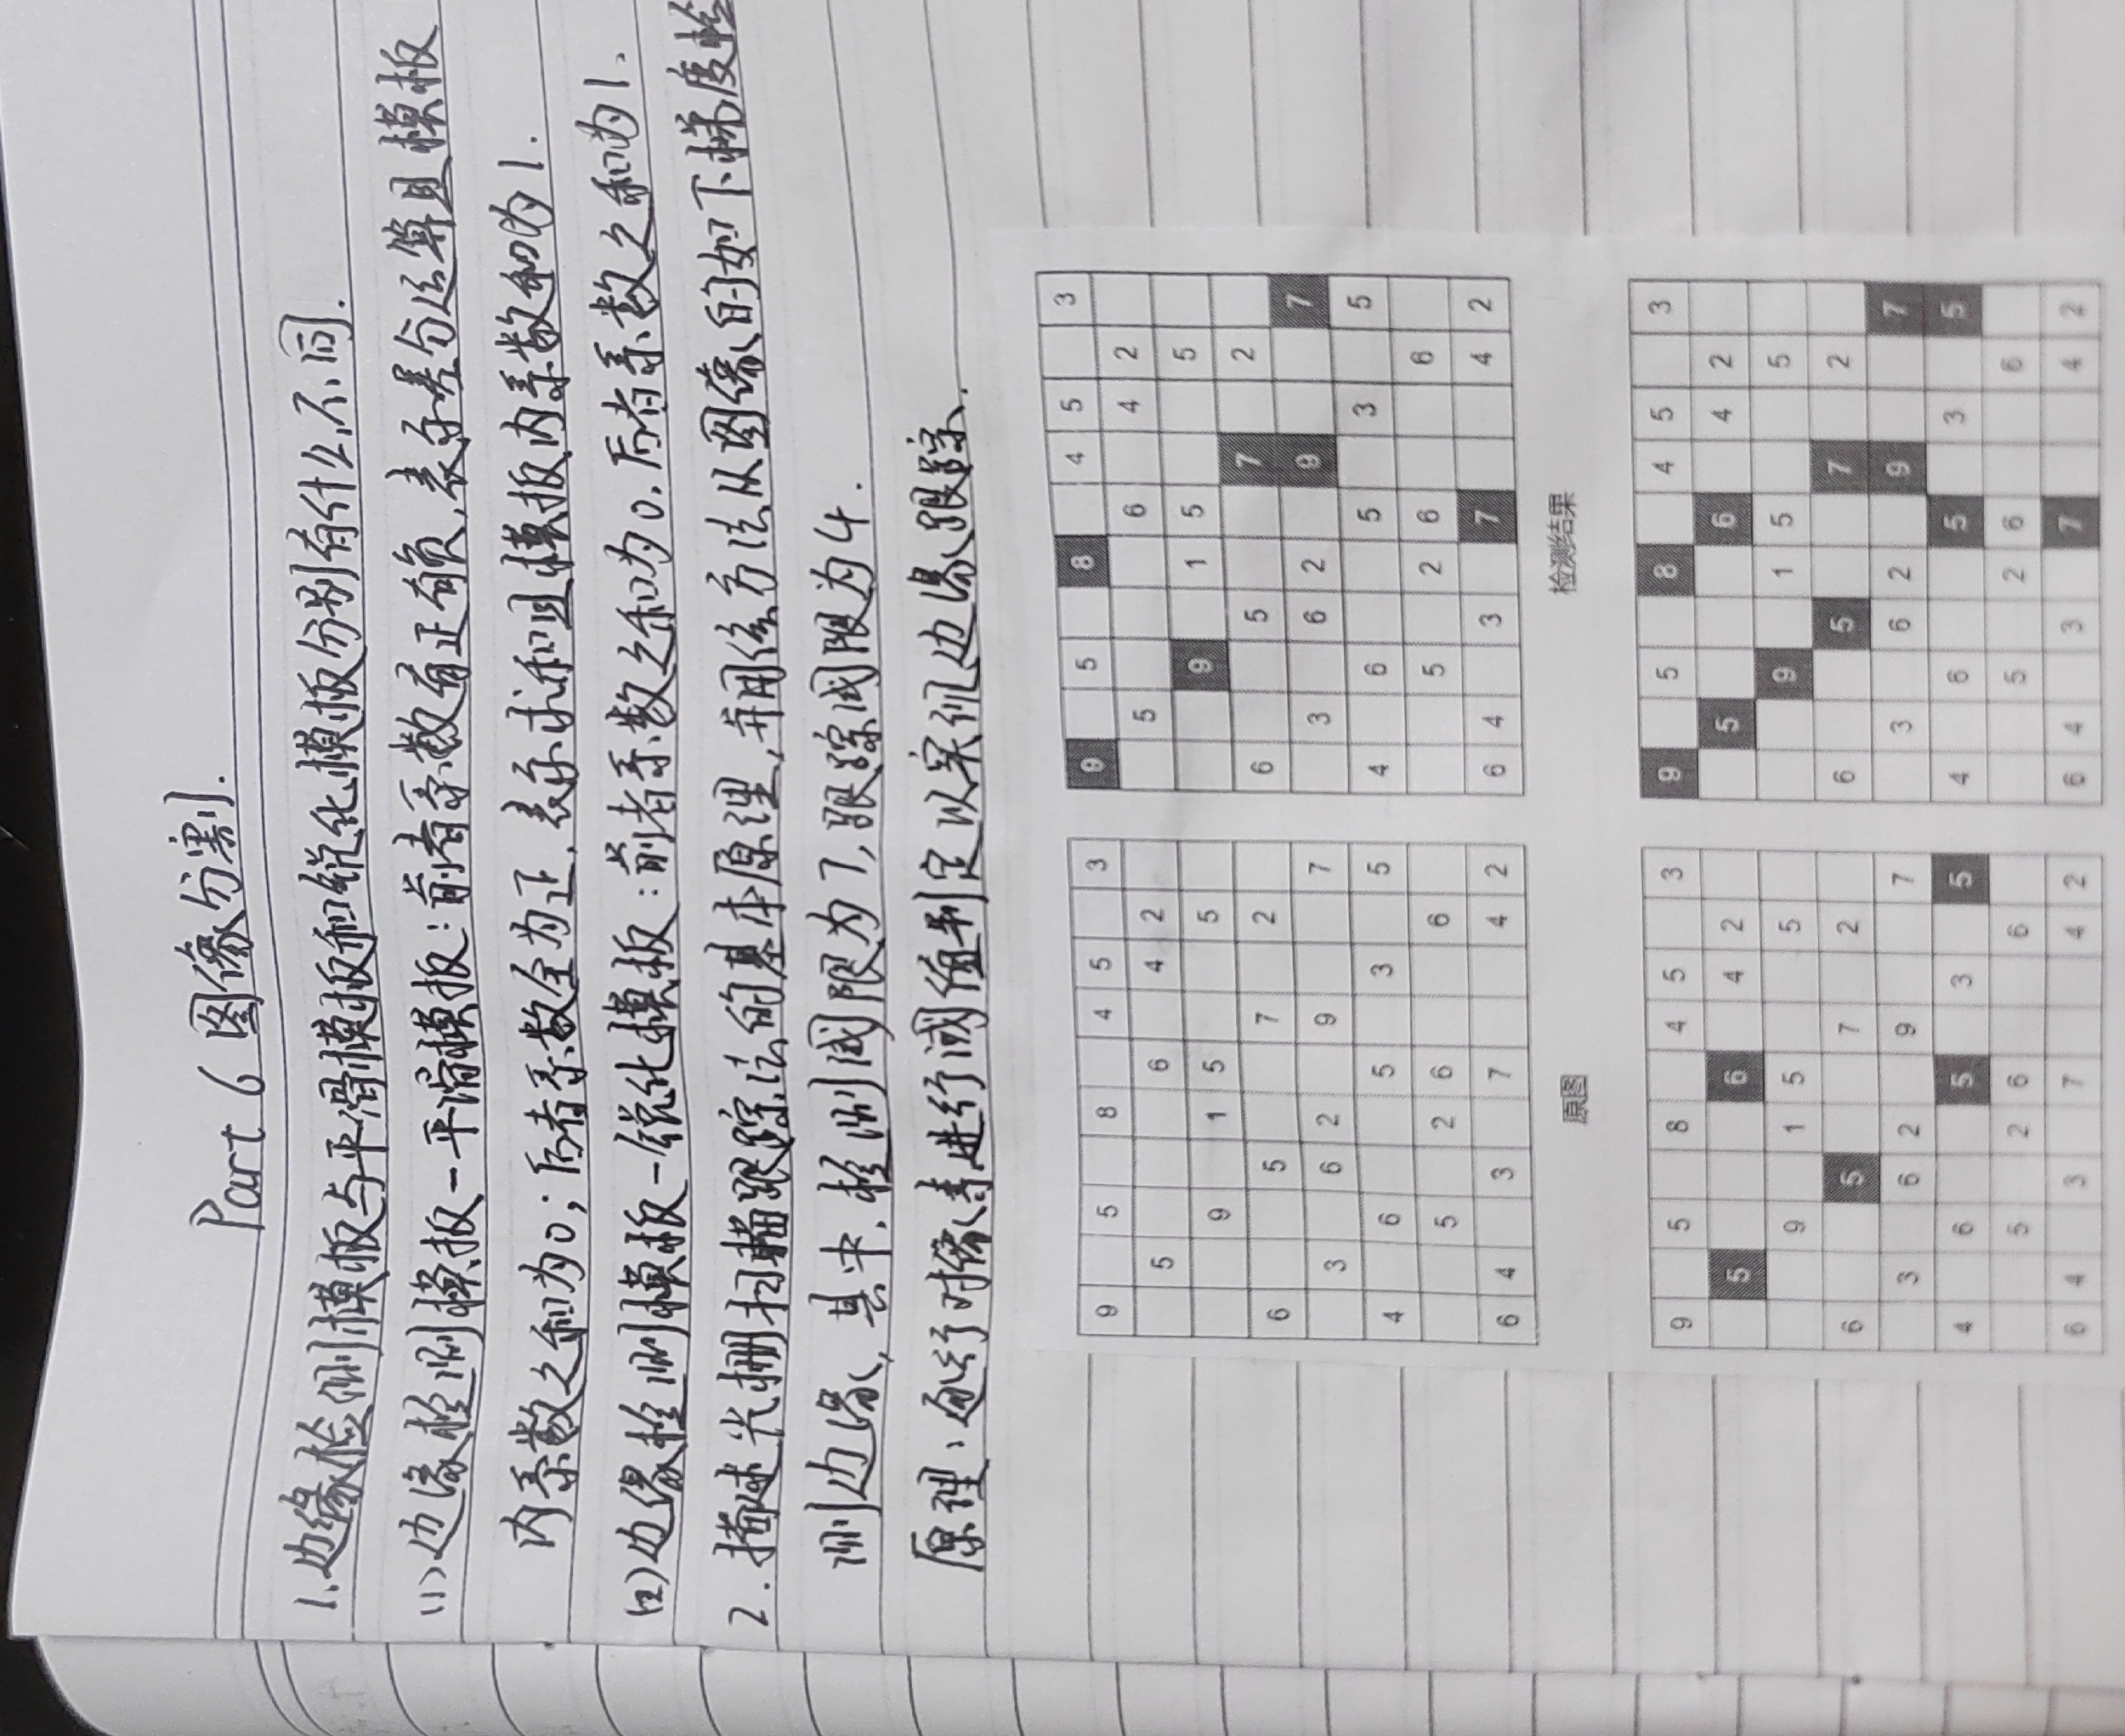 Part 6 图像分割.
1.边缘检测模板与平滑模板和锐化模板分别有什么不同.
(1)边缘检测模板-平滑模板:前者系数有正有负,表示差分运算且模板
内系数之和为0;后者系数全为正,表示求和且模板内系数和为1.
(2)边缘检测模板-锐化模板:前者系数之和为0.后者系数之和为1.
2.描述光栅扫描跟踪法的基本原理,并用该方法从图像的如下梯度检
测边缘,其中,检测阈限为7,跟踪阈限为4.
原理:逐行对像素进行阈值判定以实现边缘跟踪.
9 5 8 4 5 3
5 6 4 2
9 1 5 5
6 5 7 2
3 6 2 9 7
4 6 5 3 5
5 2 6 6
6 4 3 7 4 2
原图
9 5 8 4 5 3
5 6 4 2
9 1 5 5
6 5 7 2
3 6 2 9 7
4 6 5 3 5
5 2 6 6
6 4 3 7 4 2
检测结果
9 5 8 4 5 3
5 6 4 2
9 1 5 5
6 5 7 2
3 6 2 9 7
4 6 5 3 5
5 2 6 6
6 4 3 7 4 2
9 5 8 4 5 3
5 6 4 2
9 1 5 5
6 5 7 2
3 6 2 9 7
4 6 5 3 5
5 2 6 6
6 4 3 7 4 2